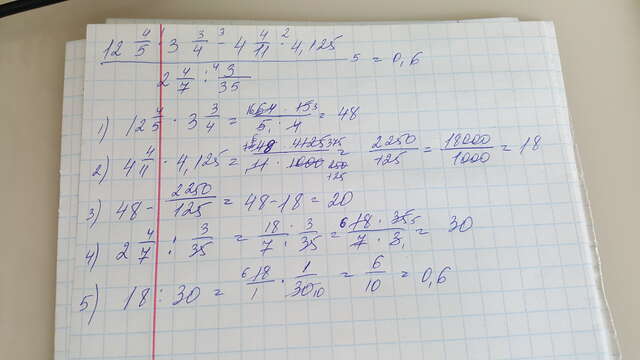 12 4/5 · 3 3/4 - 4 4/11 · 4,125
2 4/7 : 3/35
= 0,6
1) 12 4/5 · 3 3/4 = 64 · 15 / 5 · 4 = 48
2) 4 4/11 · 4,125 = 48 · 4125 / 11 · 1000 = 2250/125 = 18000/1000 = 18
3) 48 - 2250/125 = 48 - 18 = 20
4) 2 4/7 : 3/35 = 18/7 : 3/35 = 18 · 35 / 7 · 3 = 30
5) 18 : 30 = 18/1 · 1/30 = 6/10 = 0,6